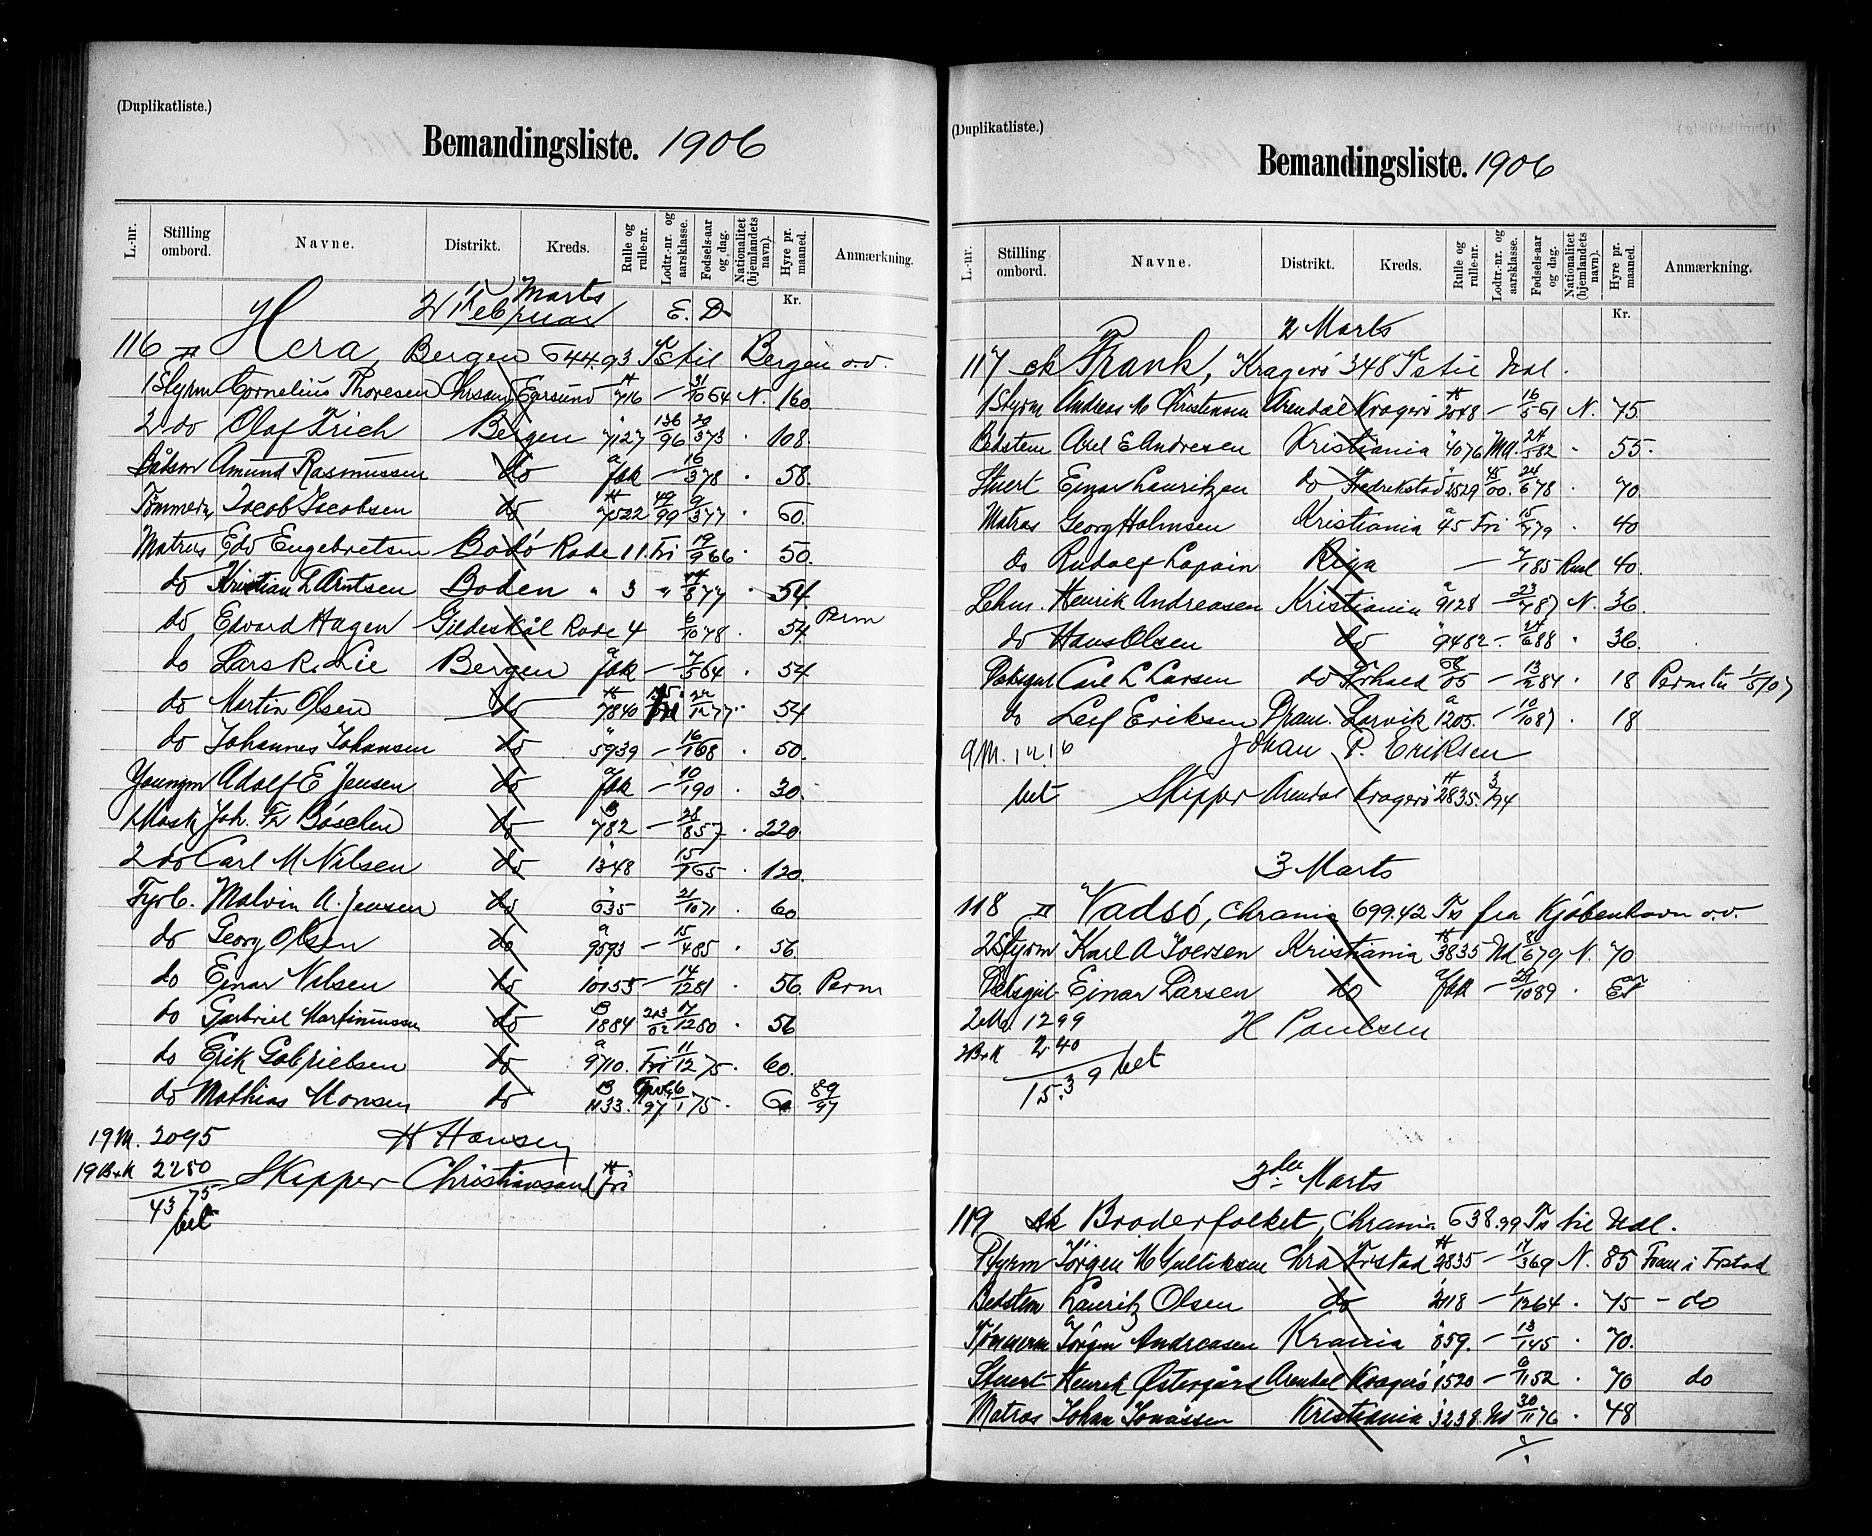 (Duplikatliste.)
Bemandingsliste. 1906
L.-nr. Stilling ombord. Navne. Distrikt. Kreds. Rulle og rulle-nr. Lodtr.-nr. og aarsklasse. Fødsels-aar og dag. Nationalitet (hjemlandets navn). Hyre pr. maaned. Anmærkning.
Kr.
2 Februar Marts E. D
116 Hera, Bergen 644.93 Ts til Bergen o.v.
1 Styrm Cornelius Thoresen Chrsand Egersund 716 — 31/10 64 N. 160
2 do Olaf Frich Bergen 7127 136/96 20/3 73 · 108
Båtsm Amund Rasmussen do fbk — 16/3 78 · 58
Tømmerm Jacob Jacobsen do 7522 49/99 9/3 77 · 60
Matros Edv Engebretsen Bodö Rode 11 Fri 19/9 66 · 50
do Kristian L Arntsen Boden " 3 " 14/8 77 · 54
do Edvard Hagen Gildeskål Rode 4 6/10 78 · 54 Perm
do Lars R. Lie Bergen fbk — 7/5 64 · 54
do Martin Olsen do 7840 22/12 77 · 54
do Johannes Johansen do 5939 — 16/1 68 · 50
Youngm Adolf E Jensen do fbk — 10/1 90 · 30
1 Mask Joh. Fr Böschen do 782 — 28/8 57 · 220
2 do Carl M Nilsen do 1348 15/9 65 · 120
Fyrb. Malvin A. Jensen do 635 21/10 71 · 60
do Georg Olsen do 9593 — 15/4 85 · 56
do Einar Nilsen do 10155 — 14/12 81 · 56 Perm
do Gabriel Martinussen do 1884 213/02 17/12 80 · 56
do Erik Gabrielsen do 9710 Fri 11/12 75 · 60
do Mathias Monsen do 1133 97 6/1 75 · 60 89/97
19 M. 2095 H Hansen
19 B+K 2280 Skipper Christiansand Fri
43 75
bet
(Duplikatliste.)
Bemandingsliste. 1906
L.-nr. Stilling ombord. Navne. Distrikt. Kreds. Rulle og rulle-nr. Lodtr.-nr. og aarsklasse. Fødsels-aar og dag. Nationalitet (hjemlandets navn). Hyre pr. maaned. Anmærkning.
Kr.
2 Marts
117 sk Frank, Kragerö 348 Ts til Udl.
1 Styrm Andreas M Christensen Arendal Kragerö 2048 — 16/5 61 N. 75
Bedstem Axel E Andresen Kristiania 4076 Ud. 24/5 82 · 55
Stuert Einar Lauritzen do Fredrikstad 2529 45/00 24/6 78 · 70
Matros Georg Holmsen Kristiania 45 Fri 15/4 79 · 40
do Rudolf Lapain Riga — 7/1 85 Rusl 40
Letm. Henrik Andreasen Kristiania 9128 — 23/7 87 N. 36
do Hans Olsen do 9482 — 24/6 88 · 36
Dæksgut Carl L Larsen do 68/05 — 13/2 84 · 18 Perm til 1/5 07
do Leif Eriksen Dram. Larvik 1205 — 10/10 87 · 18
9 M. 12.16 Johan P. Eriksen
bet Skipper Arendal Kragerö 2835 3/94
3 Marts
118 Vadsö, Chrania 699.42 Ts fra Kjöbenhavn o.v.
2 Styrm Karl A Iversen Kristiania 3835 Ud 8/6 79 N. 70
Dæksgut Einar Larsen do fbk — 29/10 89 ·
2 M. 1299 H Paulsen
2 B+K 240
15.39 bet
3die Marts
119 sk Broderfolket, Chrania 638.99 Ts til Udl.
1 Styrm Jörgen M Gulliksen Chra Frstad 2835 — 17/3 69 N. 85 Frem i Frstad
Bedstem Lauritz Olsen do 2118 — 1/12 64 · 75 – do
Tømmerm Jörgen Andreasen Krania 859. — 13/1 45 · 70.
Stuert Henrik Østergård Arendal Kragerö 1520 — 6/11 52 · 70 do
Matros Johan Jonassen Kristiania 3238 Ud 30/11 76 · 48